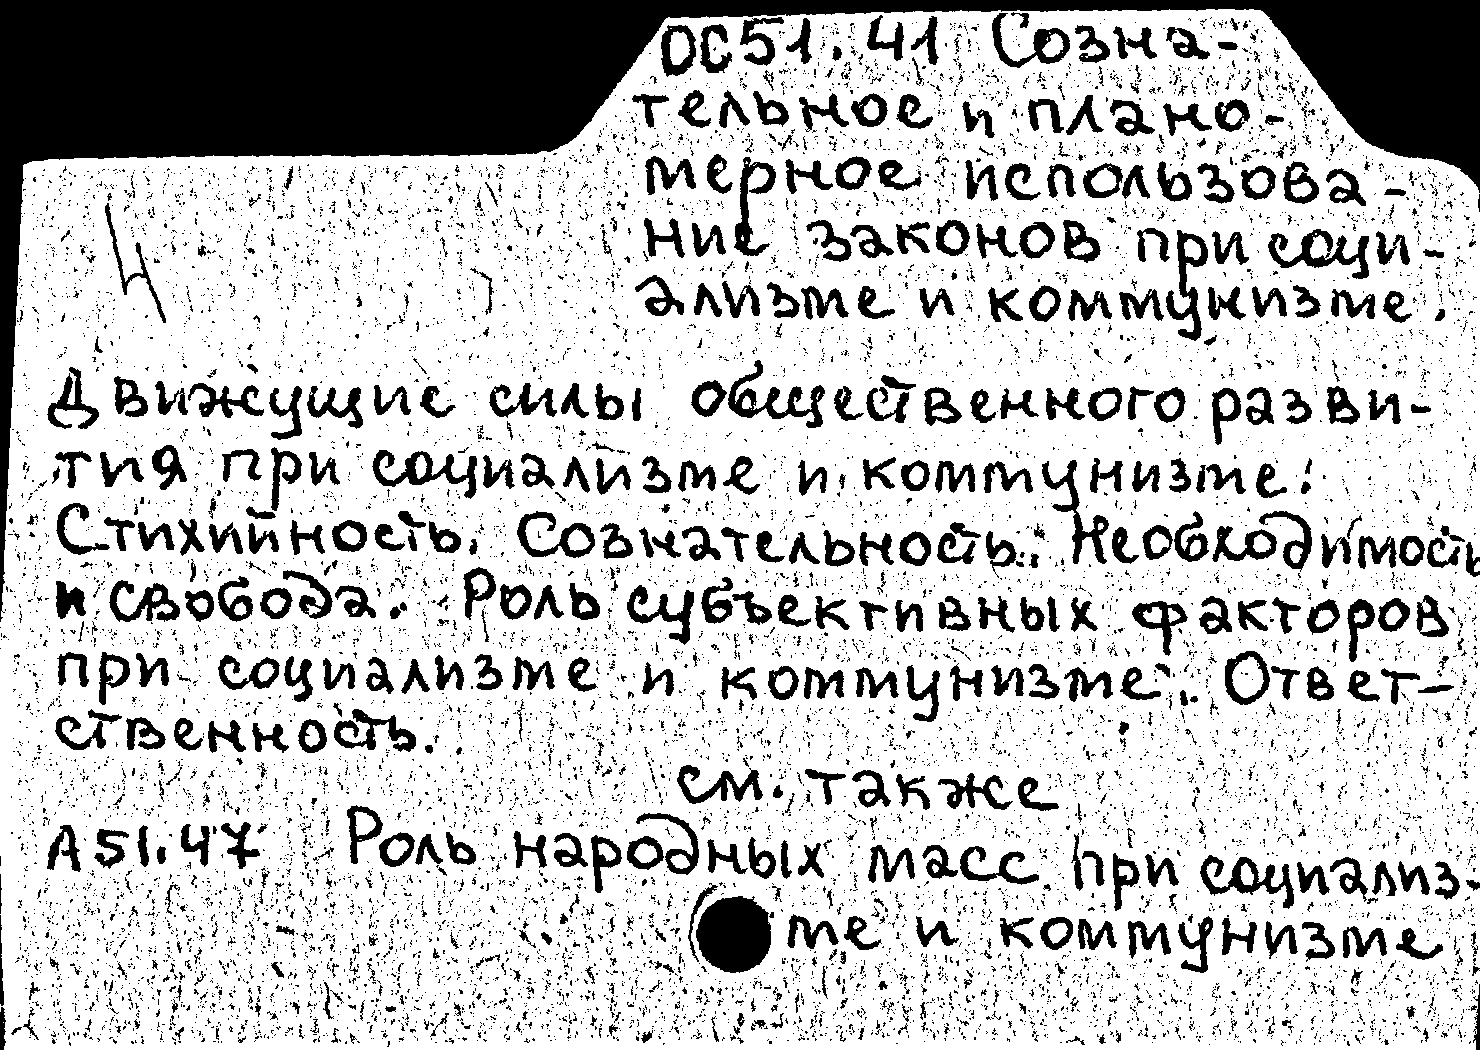 ОС51.41 Созна-
тельное и плано-
мерное использова-
ние законов при соци-
ализме и коммунизме.
4
Движущие силы общественного разви-
тия при социализме и коммунизме.
Стихийность. Сознательность. Необходимость
и свобода. Роль субъективных факторов
при социализме и коммунизме. Ответ-
ственность.
см. также
А51.47 Роль народных масс при социализ-
ме и коммунизме